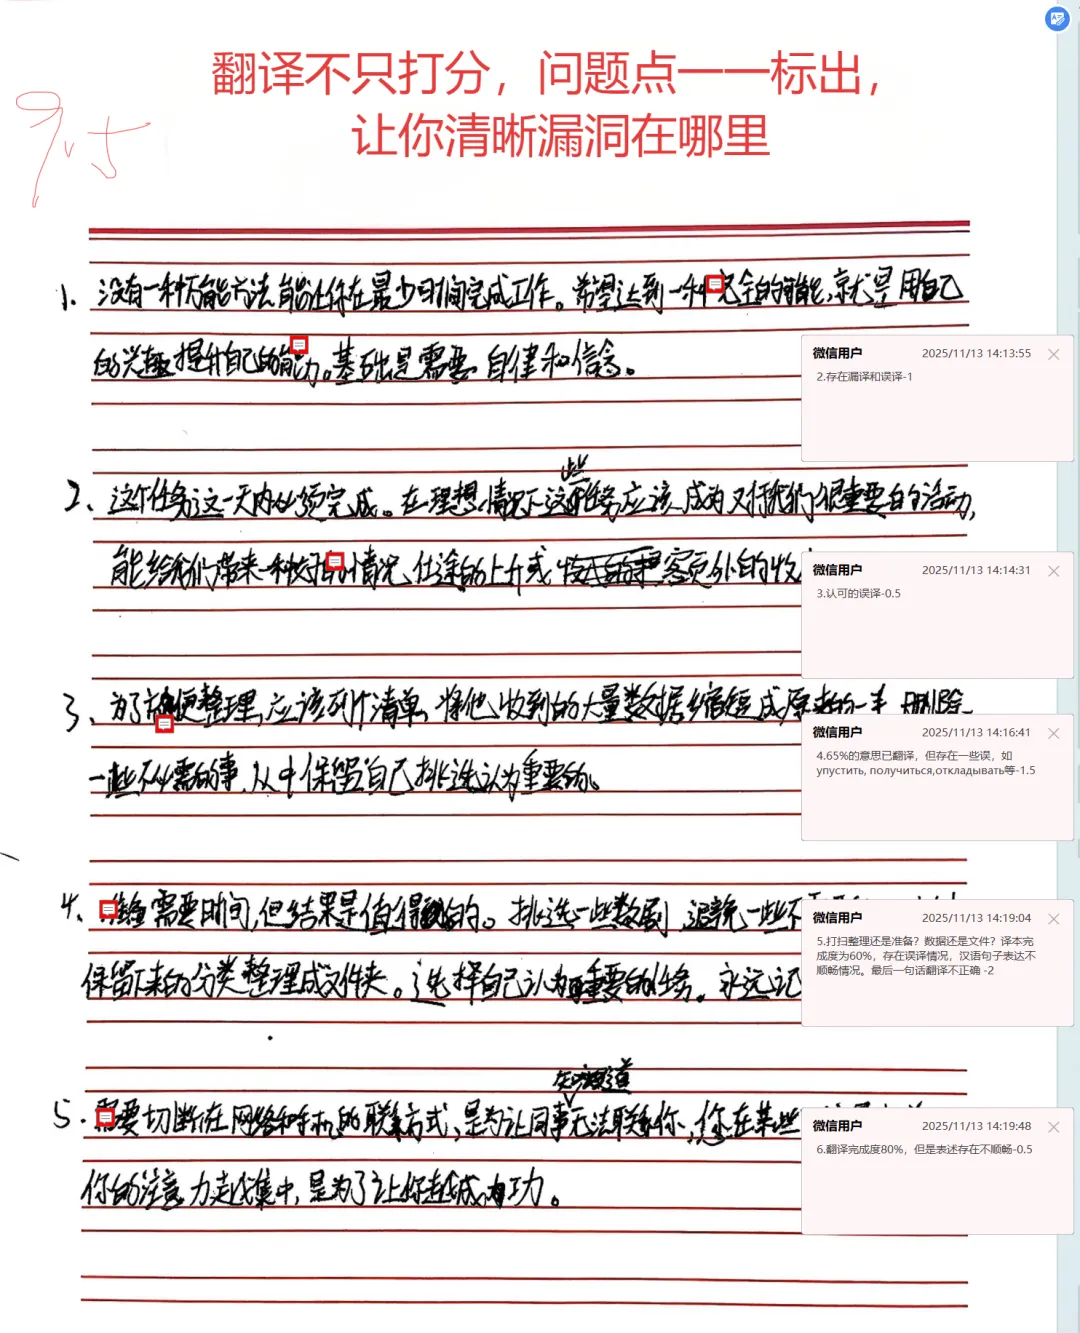 翻译不只打分，问题点一一标出，
让你清晰漏洞在哪里
9.5
1. 没有一种万能方法能让你在最少时间完成工作。希望达到一种完全的 能,就是用自己
的兴趣提升自己的能力。基础是需要自律和信念。
微信用户 2025/11/13 14:13:55
2.存在漏译和误译-1
些
2、这个任务这一天内必须完成。在理想情况下这 任务应该成为对我们很重要的活动,
能给我们带来一种好的 情况,仕途的上升或 客页外的收
微信用户 2025/11/13 14:14:31
3.认可的误译-0.5
3、为了 便整理,应该列个清单,将他收到的大量数据缩短成原来的一半 删除
一些不必需的事,从中保留自己挑选认为重要的。
微信用户 2025/11/13 14:16:41
4.65%的意思已翻译，但存在一些误，如
упустить, получиться,откладывать等-1.5
4、 需要时间,但结果是值得 的。挑选一些数剧,避免一些不
保留下来的分类整理成文件夹。选择自己认为重要的任务。永远记
微信用户 2025/11/13 14:19:04
5.打扫整理还是准备？数据还是文件？译本完
成度为60%，存在误译情况，汉语句子表达不
顺畅情况。最后一句话翻译不正确 -2
知道
5. 需要切断在网络和手机的联系方式,是为让同事无法联系你,你在某些
你的注意力越集中,是为了让你越成功。
微信用户 2025/11/13 14:19:48
6.翻译完成度80%，但是表述存在不顺畅-0.5